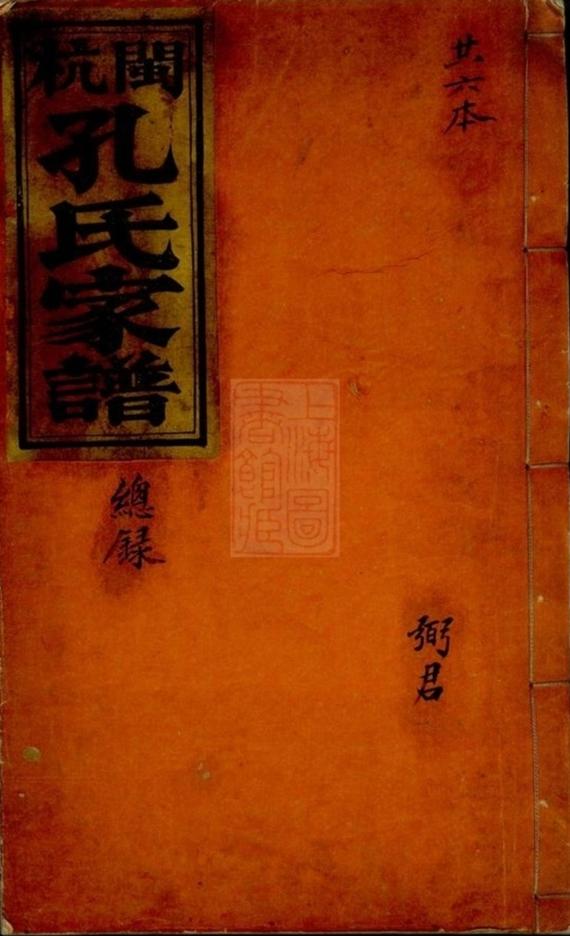 共六本
弼君
閩杭
孔氏家譜
總録
上海圖
書館藏